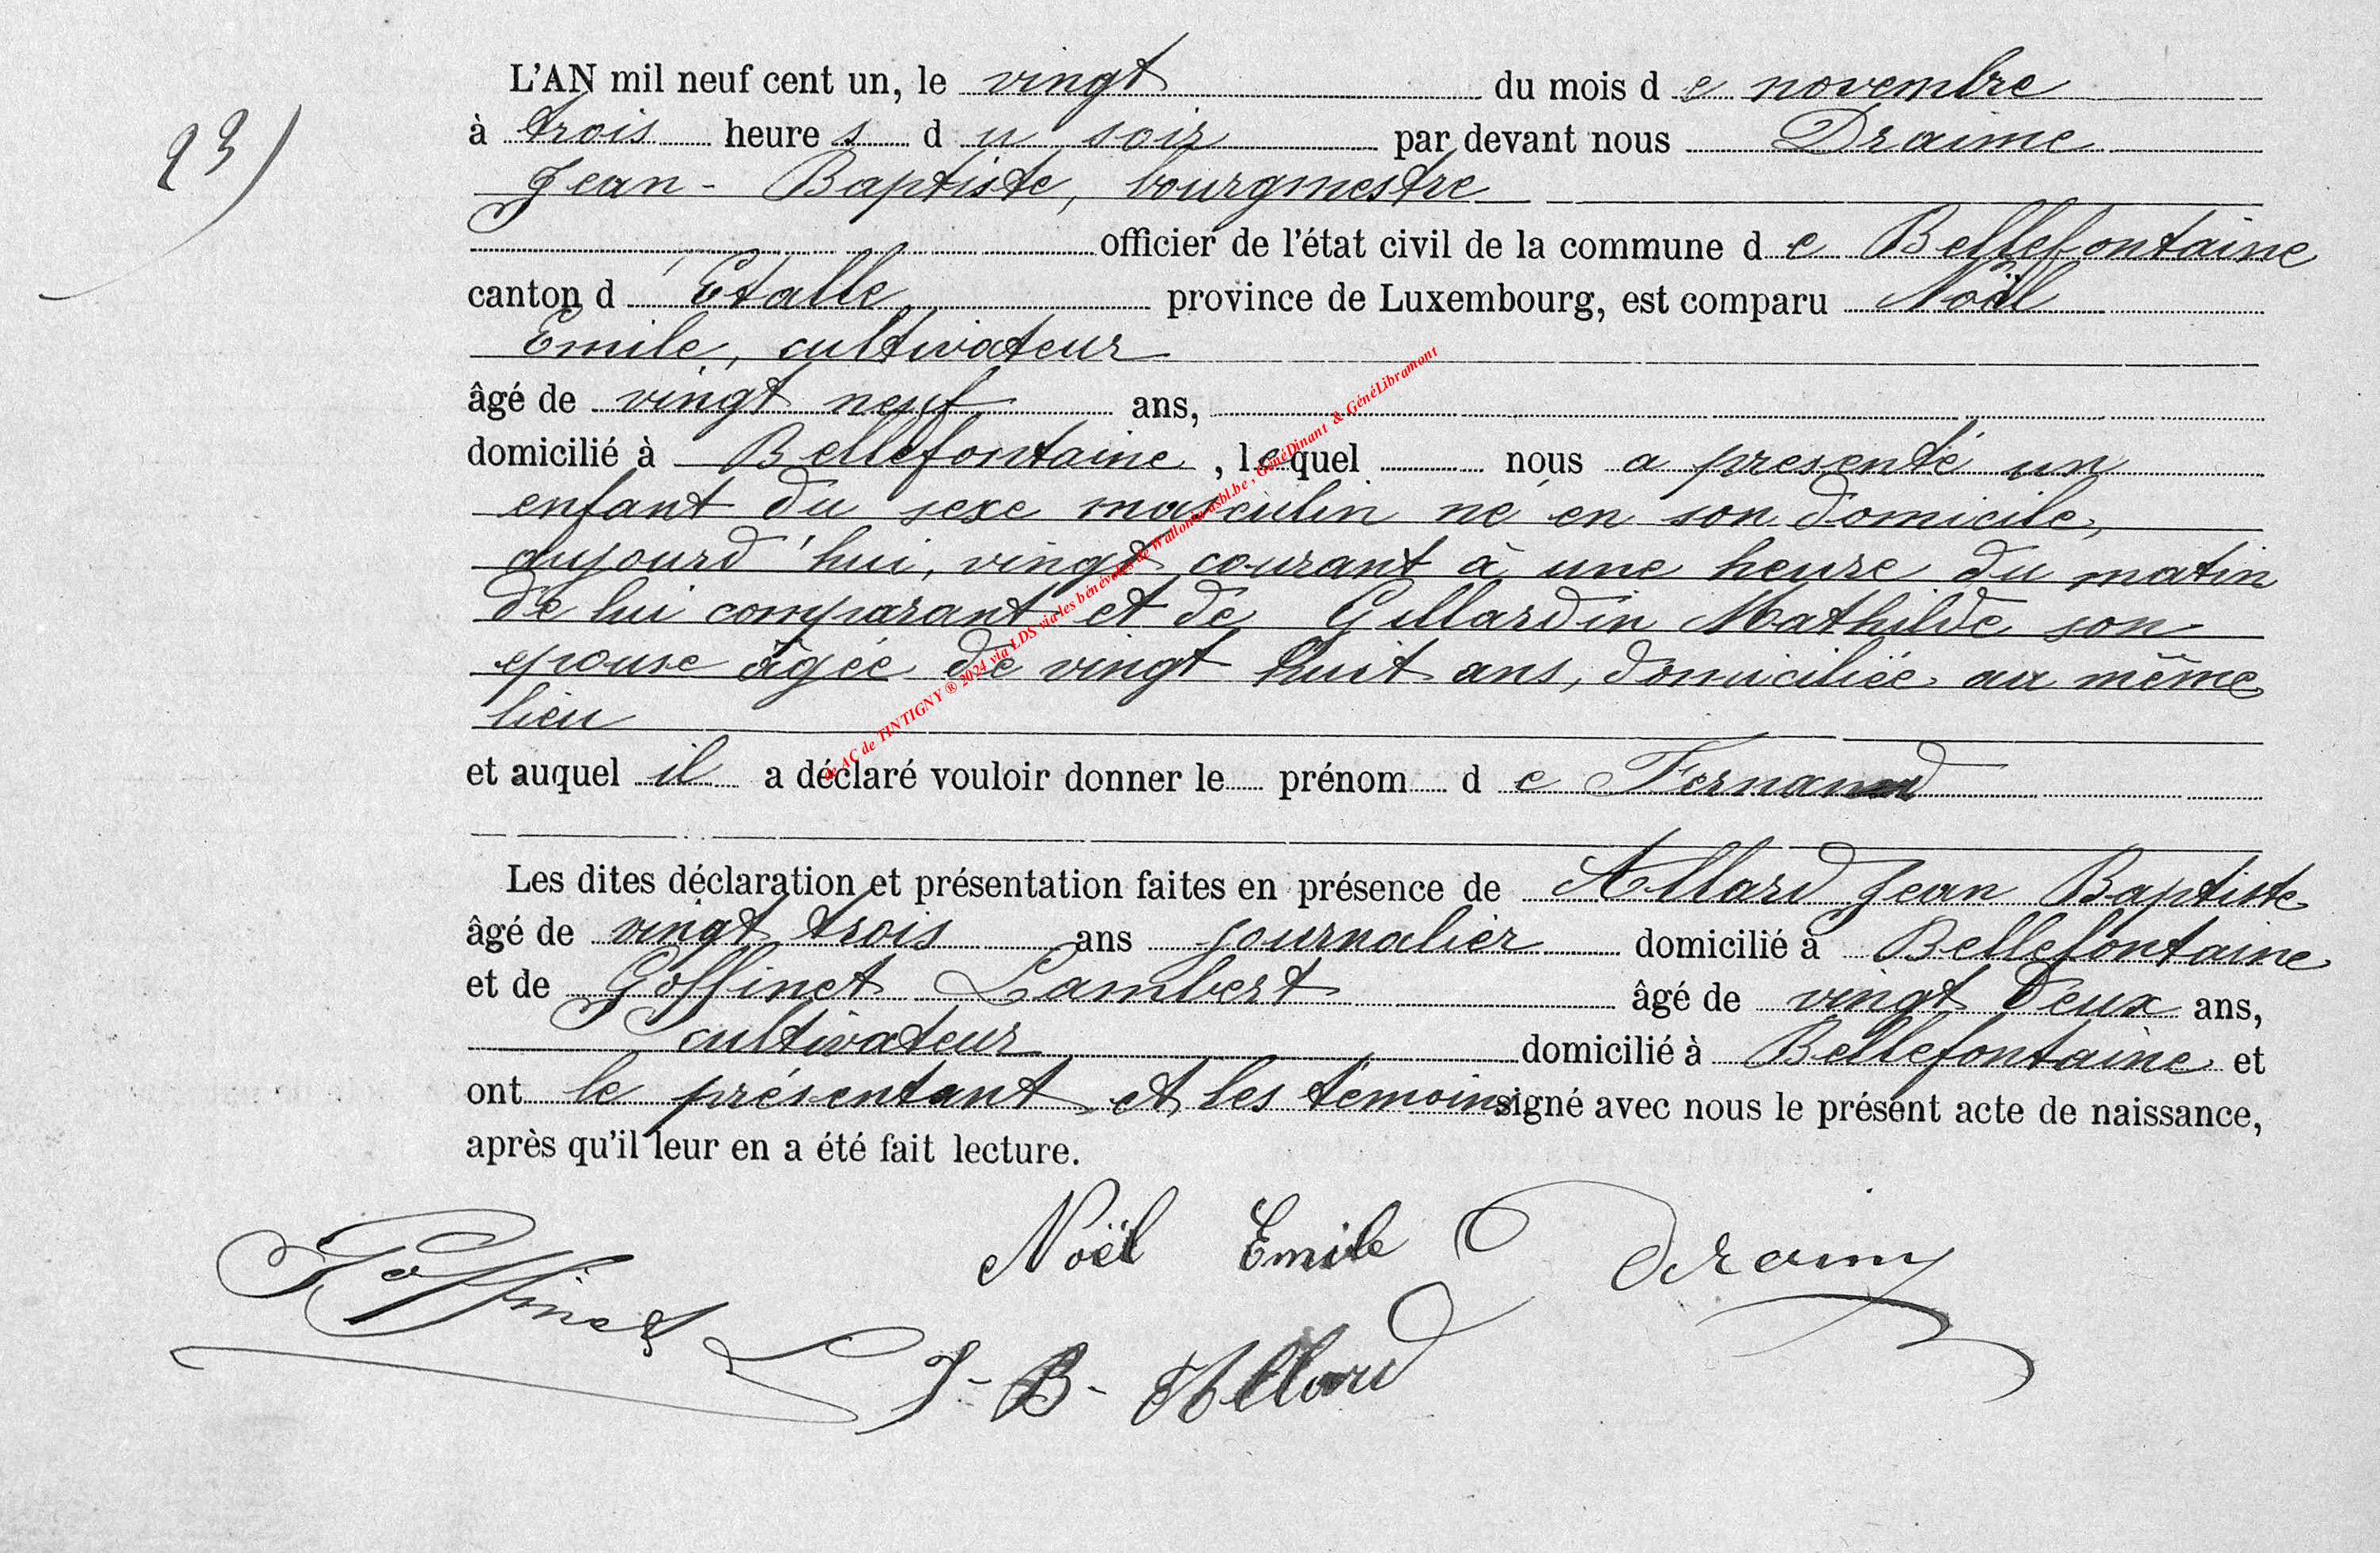 L'AN mil neuf cent un, le vingt du mois de novembre
23) à trois heures du soir par devant nous Draime
Jean-Baptiste, bourgmestre
officier de l'état civil de la commune de Bellefontaine
canton d'Etalle, province de Luxembourg, est comparu Noël
Emile, cultivateur
âgé de vingt neuf ans,
domicilié à Bellefontaine, lequel nous a presenté un
enfant du sexe masculin né en son domicile,
aujourd'hui, vingt courant à une heure du matin
de lui comparant et de Gillardin Mathilde son
epouse âgée de vingt huit ans, domiciliée au même
lieu
et auquel il a déclaré vouloir donner le prénom de Fernand
Les dites déclaration et présentation faites en présence de Allard Jean Baptiste
âgé de vingt trois ans journalier domicilié à Bellefontaine
et de Goffinet Lambert âgé de vingt deux ans,
cultivateur domicilié à Bellefontaine et
ont le présentant et les témoins signé avec nous le présent acte de naissance,
après qu'il leur en a été fait lecture.
Noël Emile Draime
Goffinet L J-B- Allard
AC de TINTIGNY ® 2024 via LDS via les bénévoles de Wallonia asbl.be, GénéDinant & GénéLibramont